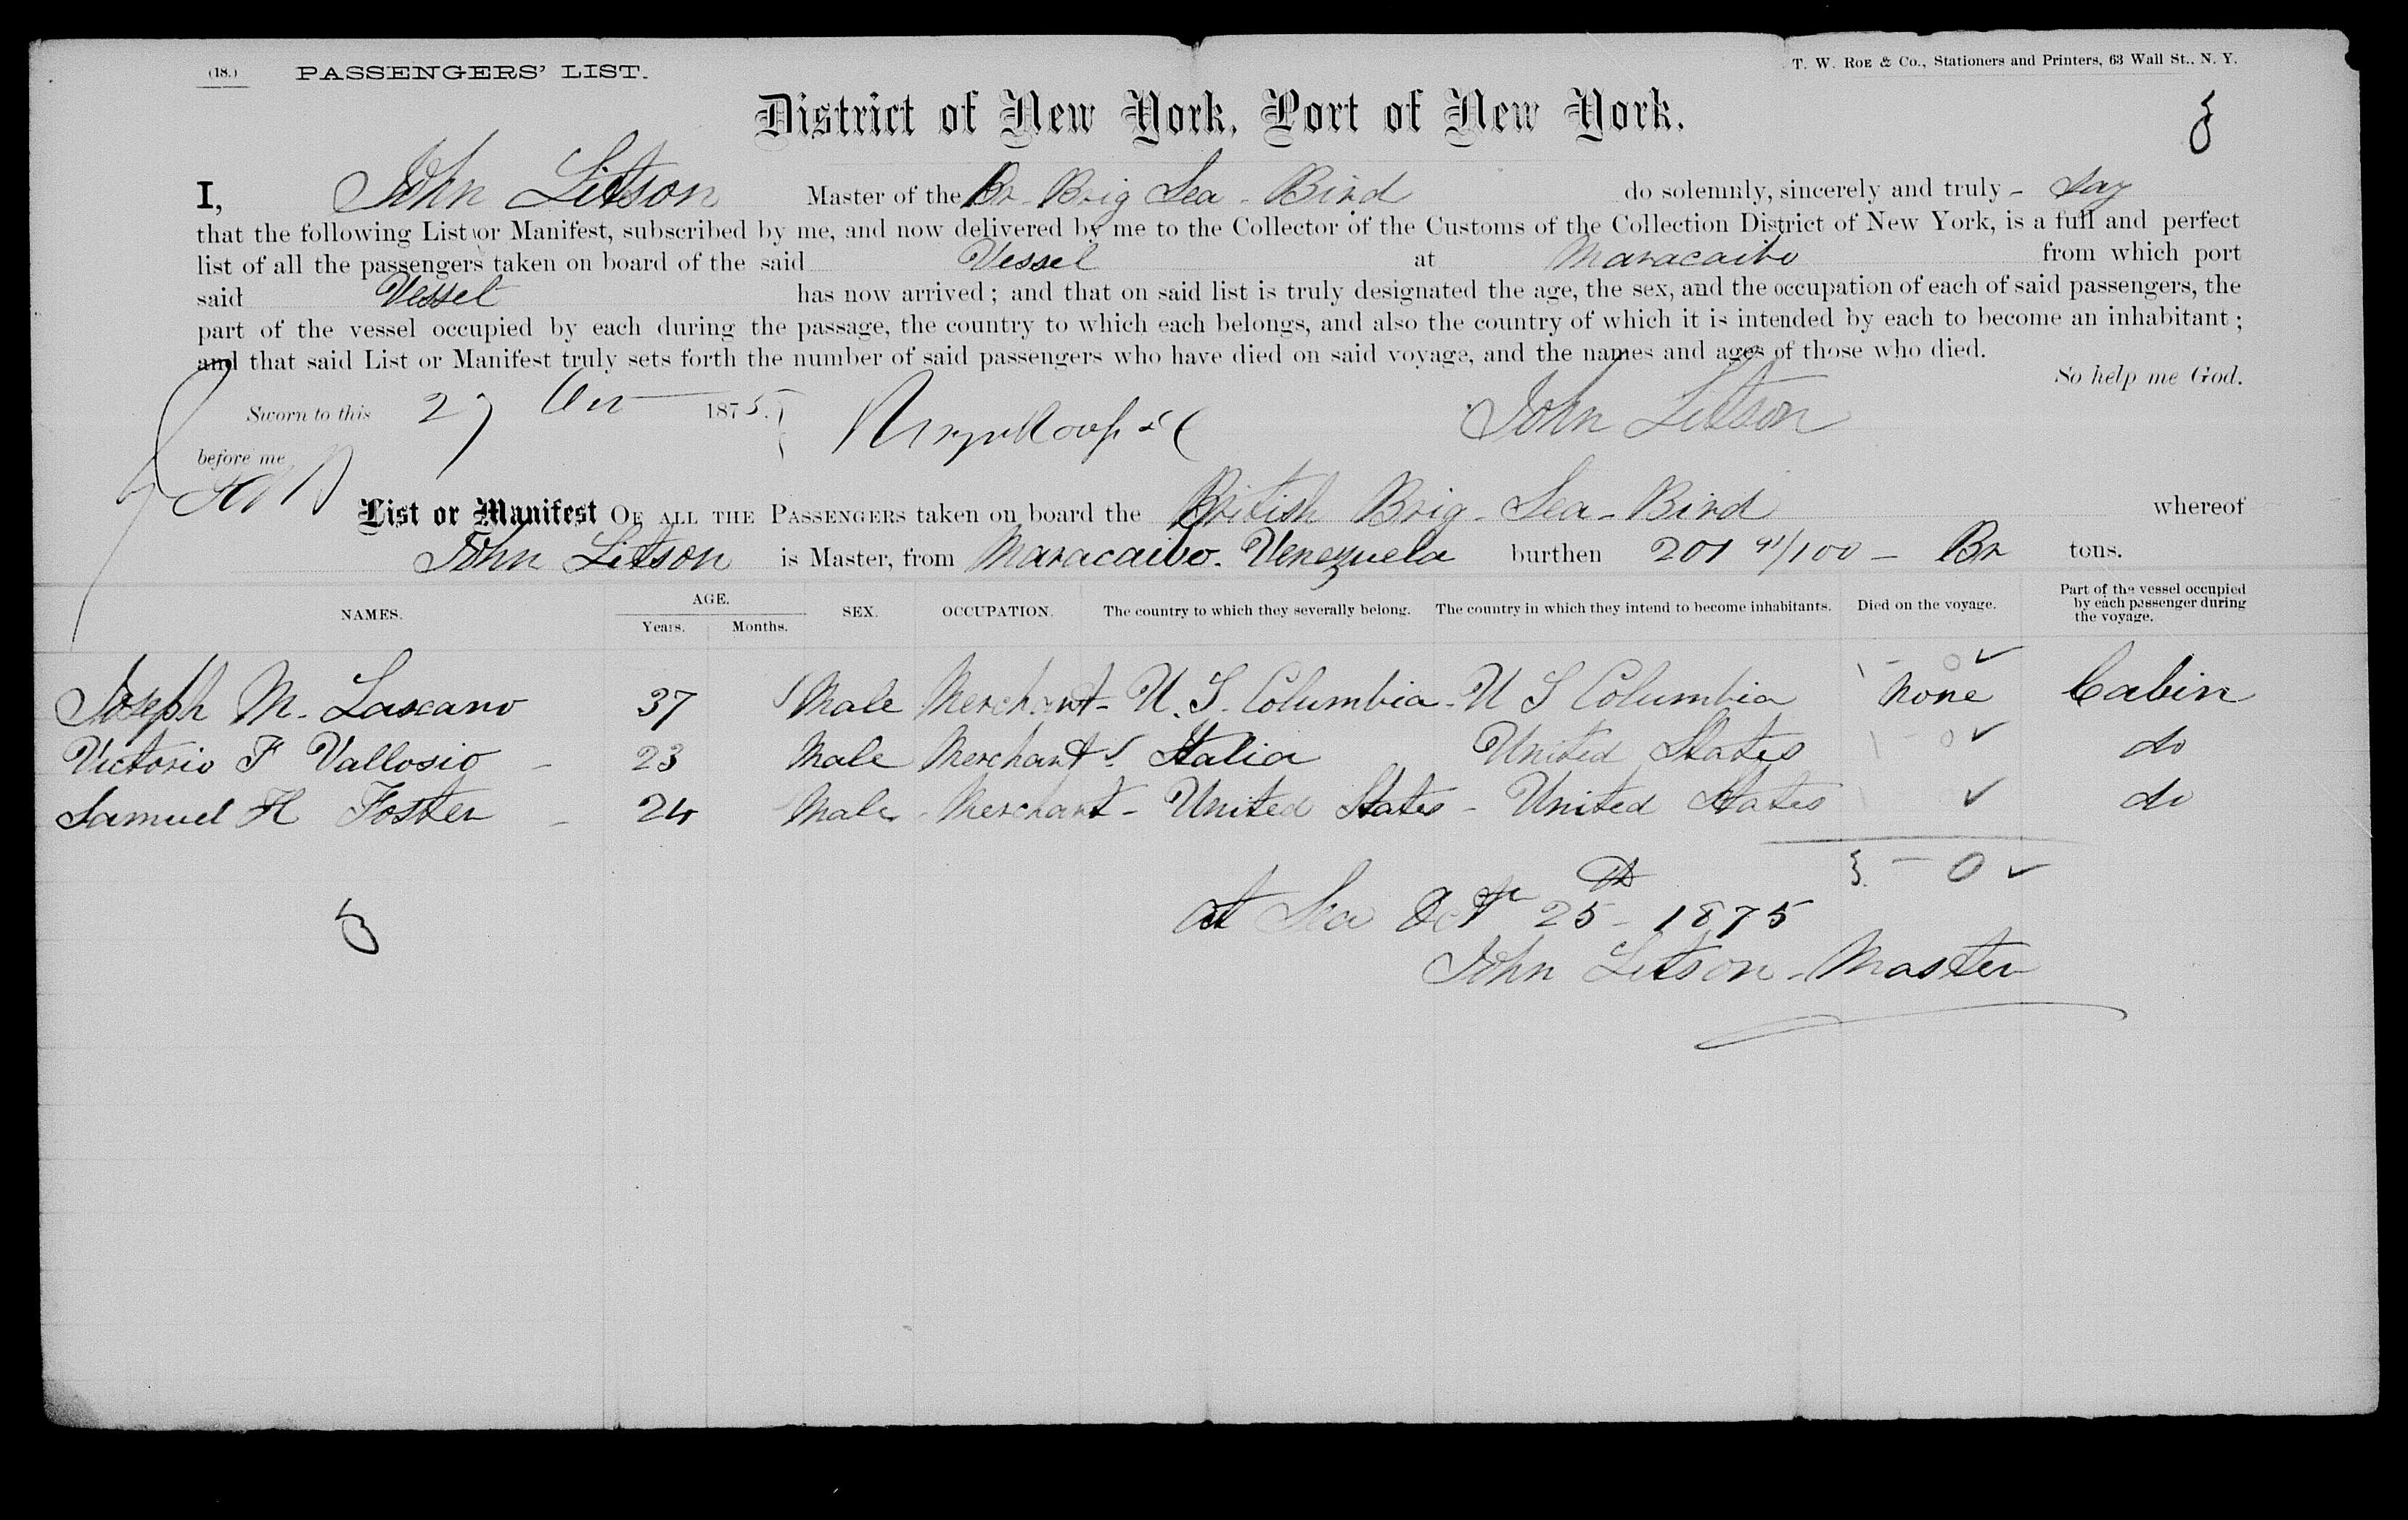 (18.) PASSENGERS' LIST. T. W. ROE & Co., Stationers and Printers, 63 Wall St., N. Y.
District of New York, Port of New York.
3
I, John Litson Master of the Br Brig Sea - Bird do solemnly, sincerely and truly - Say
that the following List or Manifest, subscribed by me, and now delivered by me to the Collector of the Customs of the Collection District of New York, is a full and perfect
list of all the passengers taken on board of the said Vessel at Maracaibo from which port
said Vessel has now arrived; and that on said list is truly designated the age, the sex, and the occupation of each of said passengers, the
part of the vessel occupied by each during the passage, the country to which each belongs, and also the country of which it is intended by each to become an inhabitant;
and that said List or Manifest truly sets forth the number of said passengers who have died on said voyage, and the names and ages of those who died.
So help me God.
Sworn to this 27 Oct 1875. John Litson
before me
List or Manifest OF ALL THE PASSENGERS taken on board the British Brig - Sea - Bird whereof
John Litson is Master, from Maracaibo. Venezuela burthen 201 41/100 - Br tons.
NAMES. AGE. Years. Months. SEX. OCCUPATION. The country to which they severally belong. The country in which they intend to become inhabitants. Died on the voyage. Part of the vessel occupied by each passenger during the voyage.
Joseph M. Lascano 37 Male Merchant - U. S. Columbia - U S Columbia None Cabin
Victorio F Vallosio - 23 Male Merchant Italia United States do
Samuel H Foster - 24 Male - Merchant - United States - United States do
3 - 0 ✓
at Sea Oct 25th - 1875
3
John Litson - Master